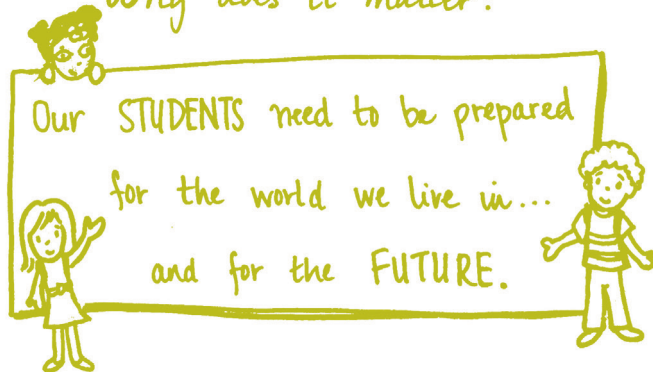 Why does it matter?
Our STUDENTS need to be prepared
for the world we live in...
and for the FUTURE.